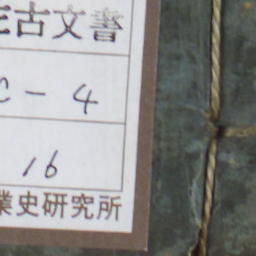 古文書
- 4
16
業史研究所